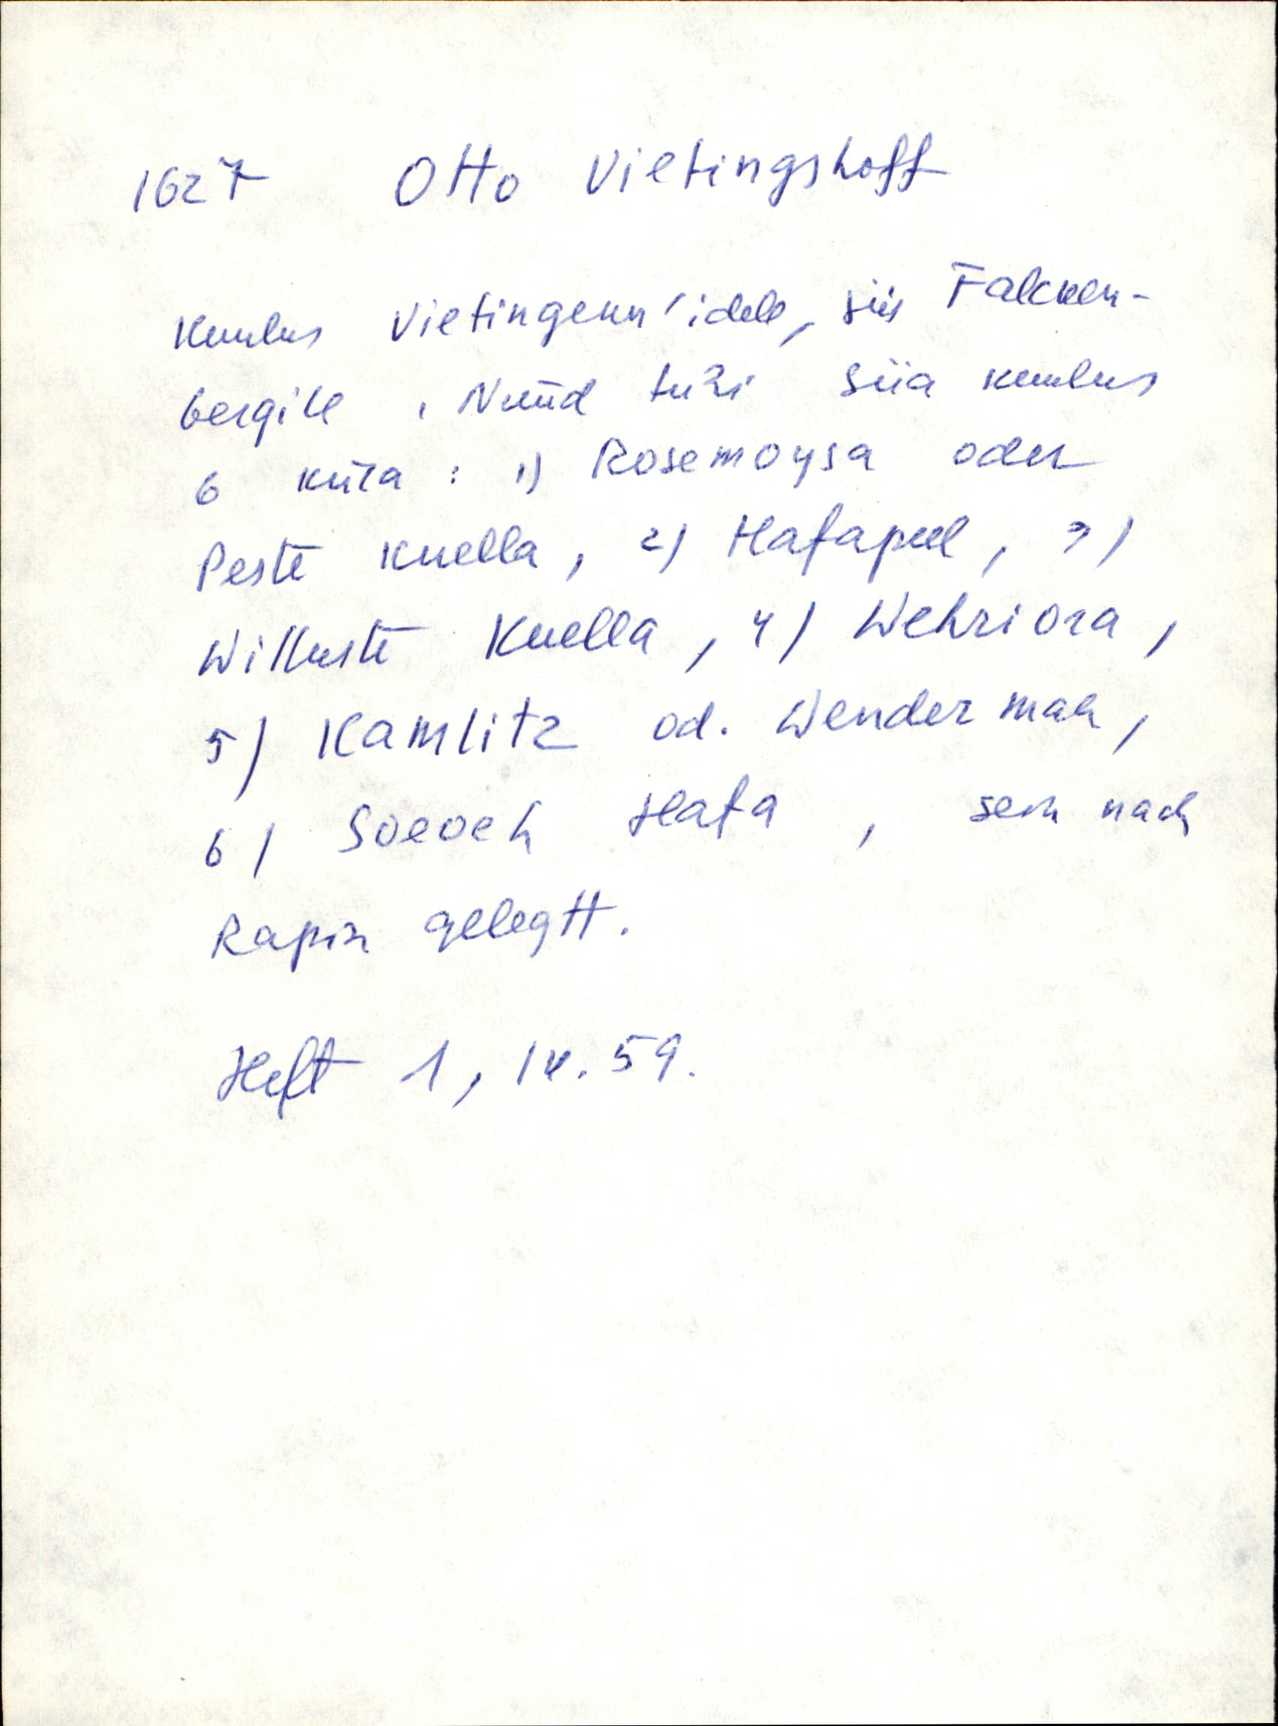 1627 Otto Vietingshoff
Kuulus Vietingenn'idele, siis Falcken-
bergile. Nüüd tühi Siia kuulus
6 küla: 1) Rosemoysa oder
Peste Kuella, 2) Hafapeel, 3)
Willuste Kuella, 4) Wehriora,
5) Kamlitz od. Wendermaa,
6) Soeoeh Hafa, sein nach
Rapin gelegtt.
Heft 1, lk. 59.